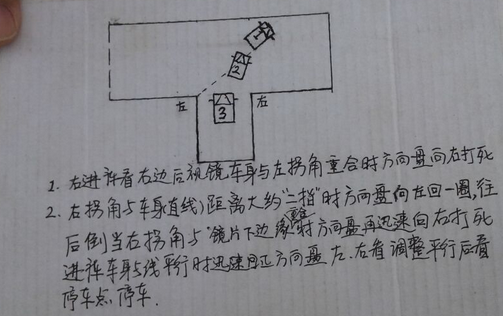 1
2
左
右
3
1. 右进库看右边后视镜车身与左拐角重合时方向盘向右打死
2. 右拐角与车身(直线)距离大约"二拍"时方向盘向左回一圈,往
后倒当右拐角与"镜片下边缘时方向盘再迅速向右打死
进库车身与线平行时迅速回正方向盘左.右看调整平行后看
停车点停车.